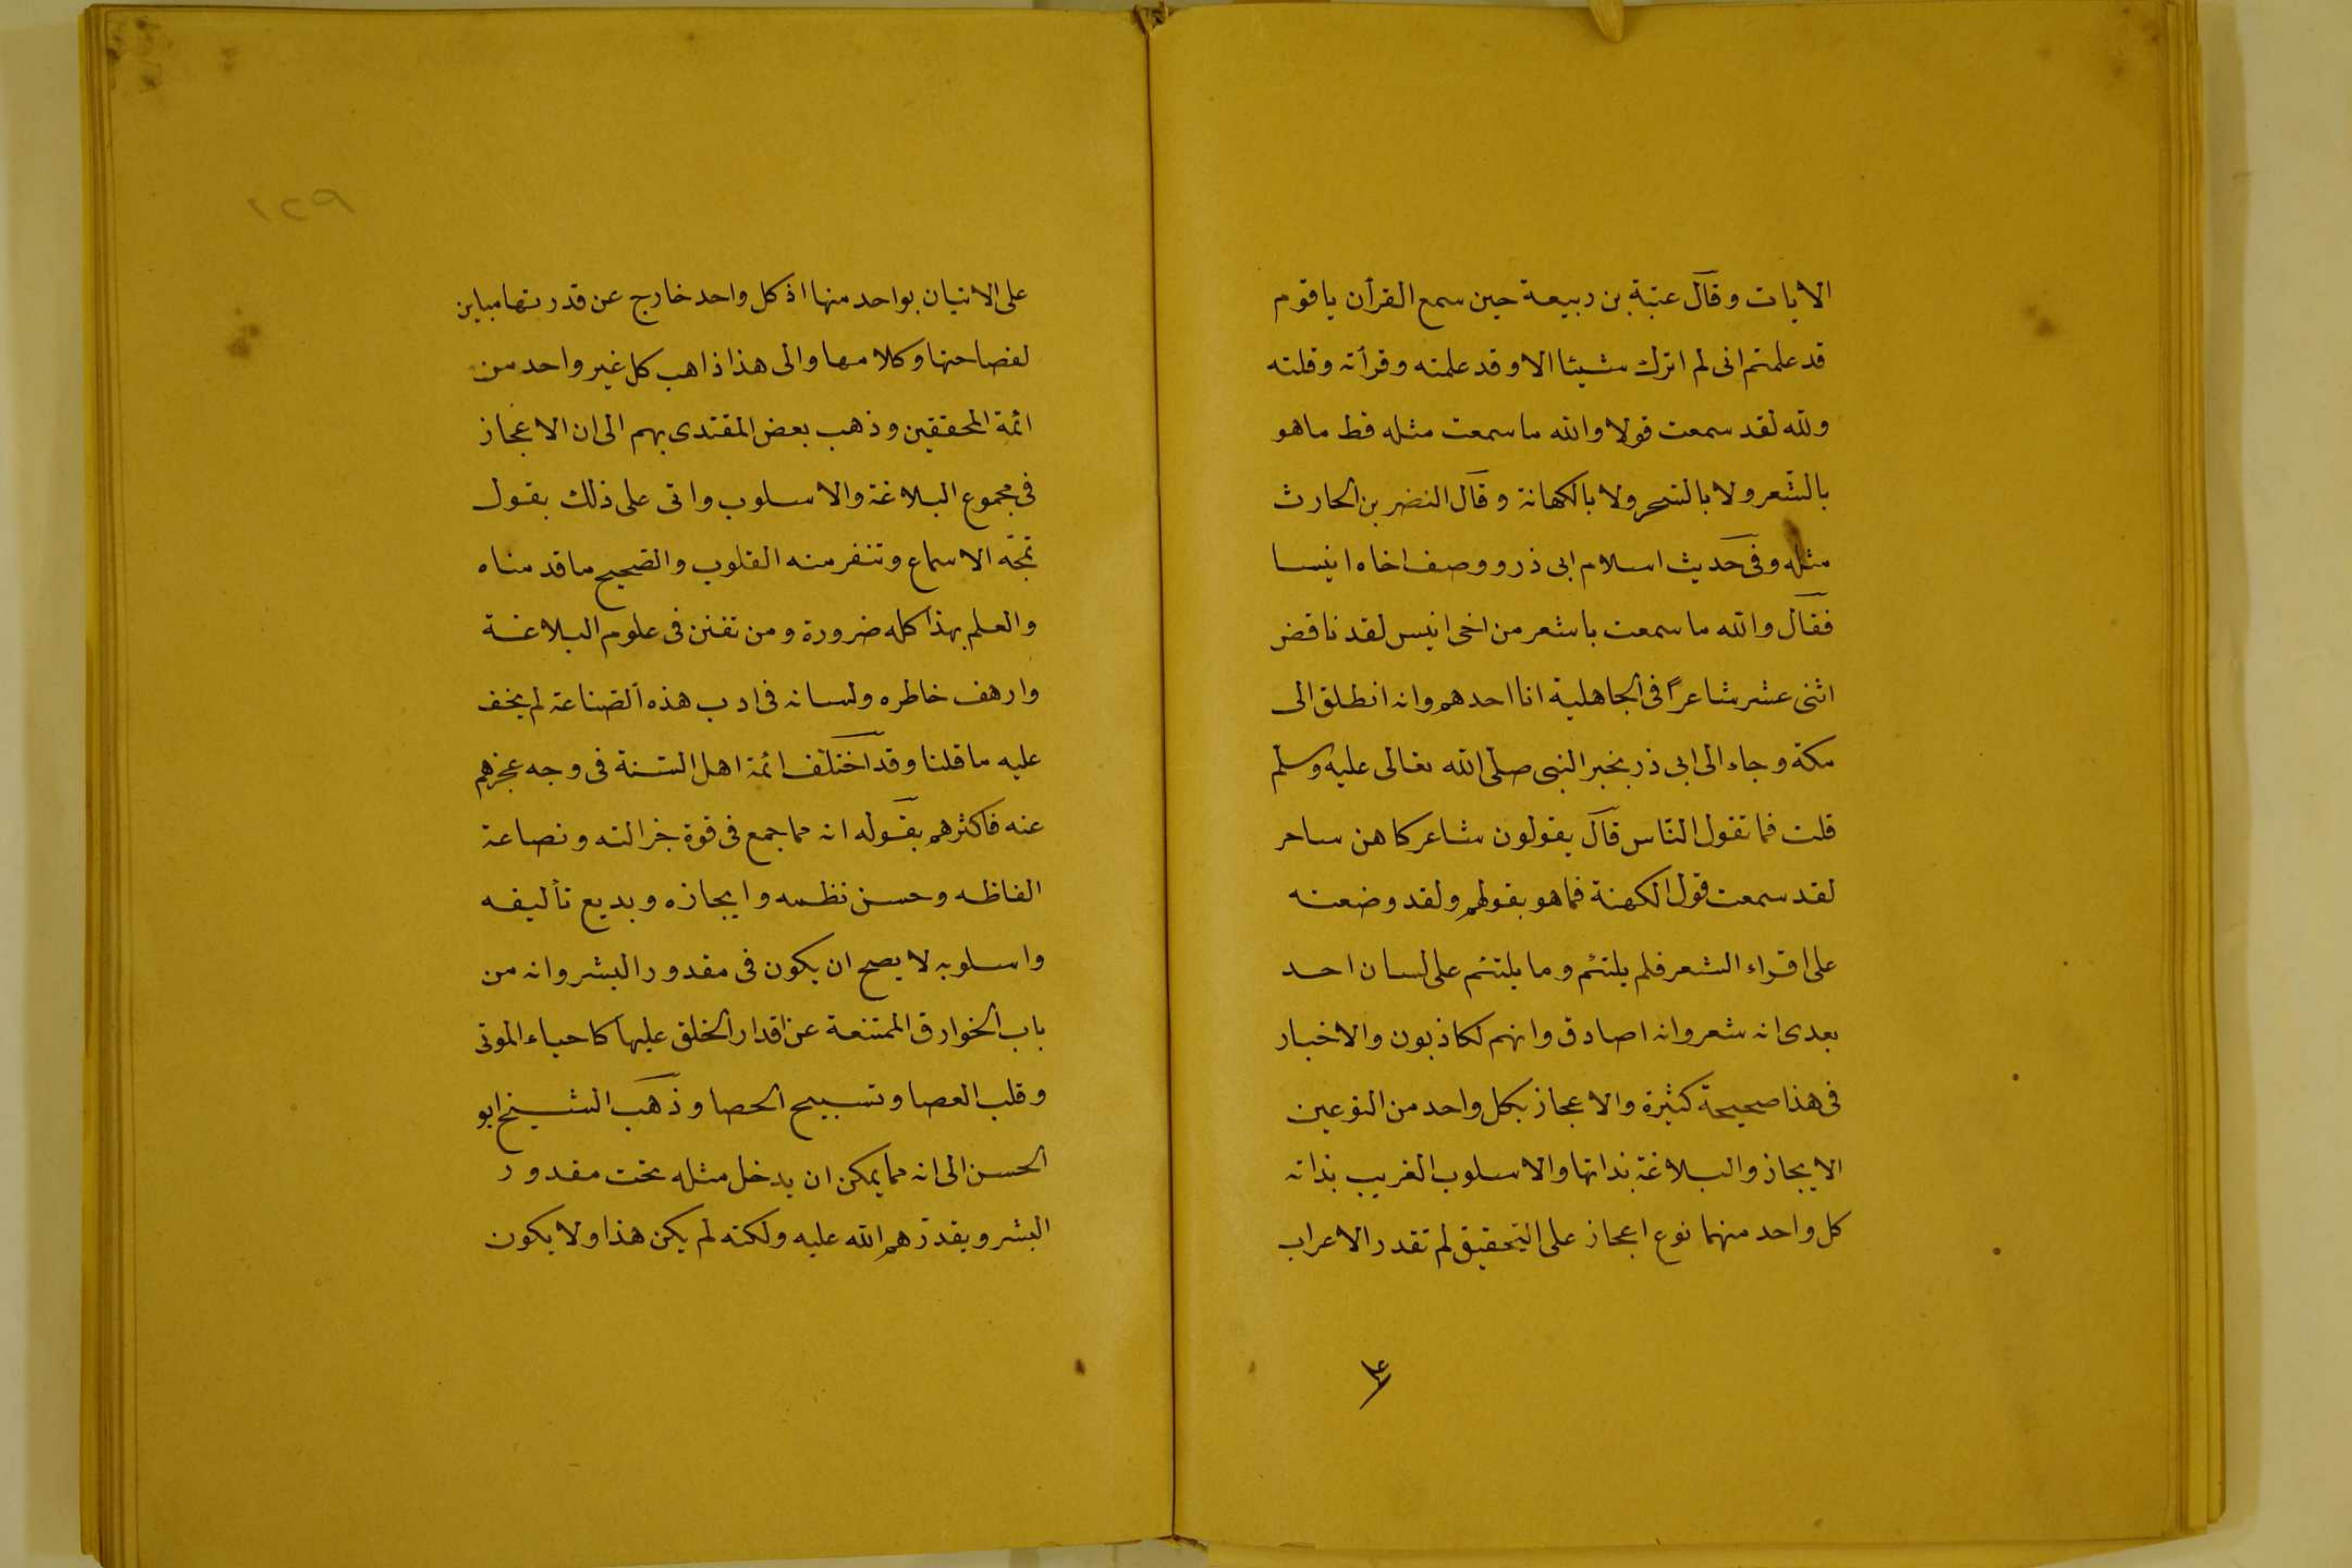 الايات وقال عتبة بن ربيعة حين سمع القرأن ياقوم
قد علمتم انى لم اترك شيئا الا وقد علمته وقرأته وقلته
ولله لقد سمعت قولا والله ما سمعت مثله قط ماهو
بالشعر ولا بالسحر ولا بالكهانة وقال النضر بن الحارث
مثله وفى حديث اسلام ابى ذر ووصف اخاه انيسا
فقال والله ما سمعت باشعر من اخى انيس لقد ناقض
اثنى عشر شاعرًا فى الجاهلية انا احدهم وانه انطلق الى
مكة وجاء الى ابى ذر بخبر النبى صلى الله تعالى عليه وسلم
قلت فما تقول الناس قال يقولون شاعر كاهن ساحر
لقد سمعت قول الكهنة فما هو بقولهم ولقد وضعته
على اقراء الشعر فلم يلتئم وما يلتئم على لسان احد
بعدى انه شعر وانه اصادق وانهم لكاذبون والاخبار
فى هذا صحيحة كثيرة والاعجاز بكل واحد من النوعين
الايجاز والبلاغة بذاتها والاسلوب الغريب بذاته
كل واحد منهما نوع اعجاز على التحقيق لم تقدر الاعراب
على
١٢٩
على الاتيان بواحد منها اذ كل واحد خارج عن قدرتها مباين
لفصاحتها وكلامها والى هذا ذاهب كل غير واحد من
ائمة المحققين وذهب بعض المقتدى بهم الى ان الاعجاز
فى مجموع البلاغة والاسلوب واتى على ذلك بقول
تمجّه الاسماع وتنفر منه القلوب والصحيح ما قدمناه
والعلم بهذا كله ضرورة ومن تفنن فى علوم البلاغة
وارهف خاطره ولسانه فى ادب هذه الصناعة لم يخف
عليه ما قلنا وقد اختلف ائمة اهل السّنة فى وجه عجزهم
عنه فاكثرهم بقوله انه مما جمع فى قوة جزالته ونصاعة
الفاظه وحسن نظمه وايجازه وبديع تأليفه
واسلوبه لا يصح ان يكون فى مقدور البشر وانه من
باب الخوارق الممتنعة عن اقدار الخلق عليها كاحياء الموتى
وقلب العصا وتسبيح الحصا وذهب الشيخ ابو
الحسن الى انه مما يمكن ان يدخل مثله تحت مقدور
البشر ويقدرهم الله عليه ولكنه لم يكن هذا ولا يكون